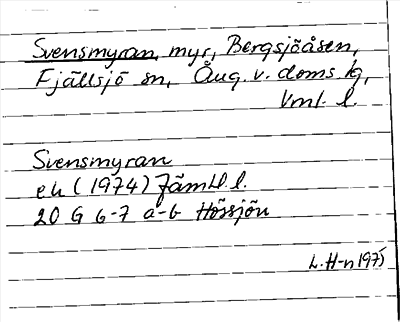 Svensmyran, myr, Bergsjöåsen,
Fjällsjö sn, Ång. v. doms. lg,
Vnl. l.
Svensmyran
ek (1974) Jämtl. l.
20 G 6-7 a-b Hössjön
L. H-n 1975